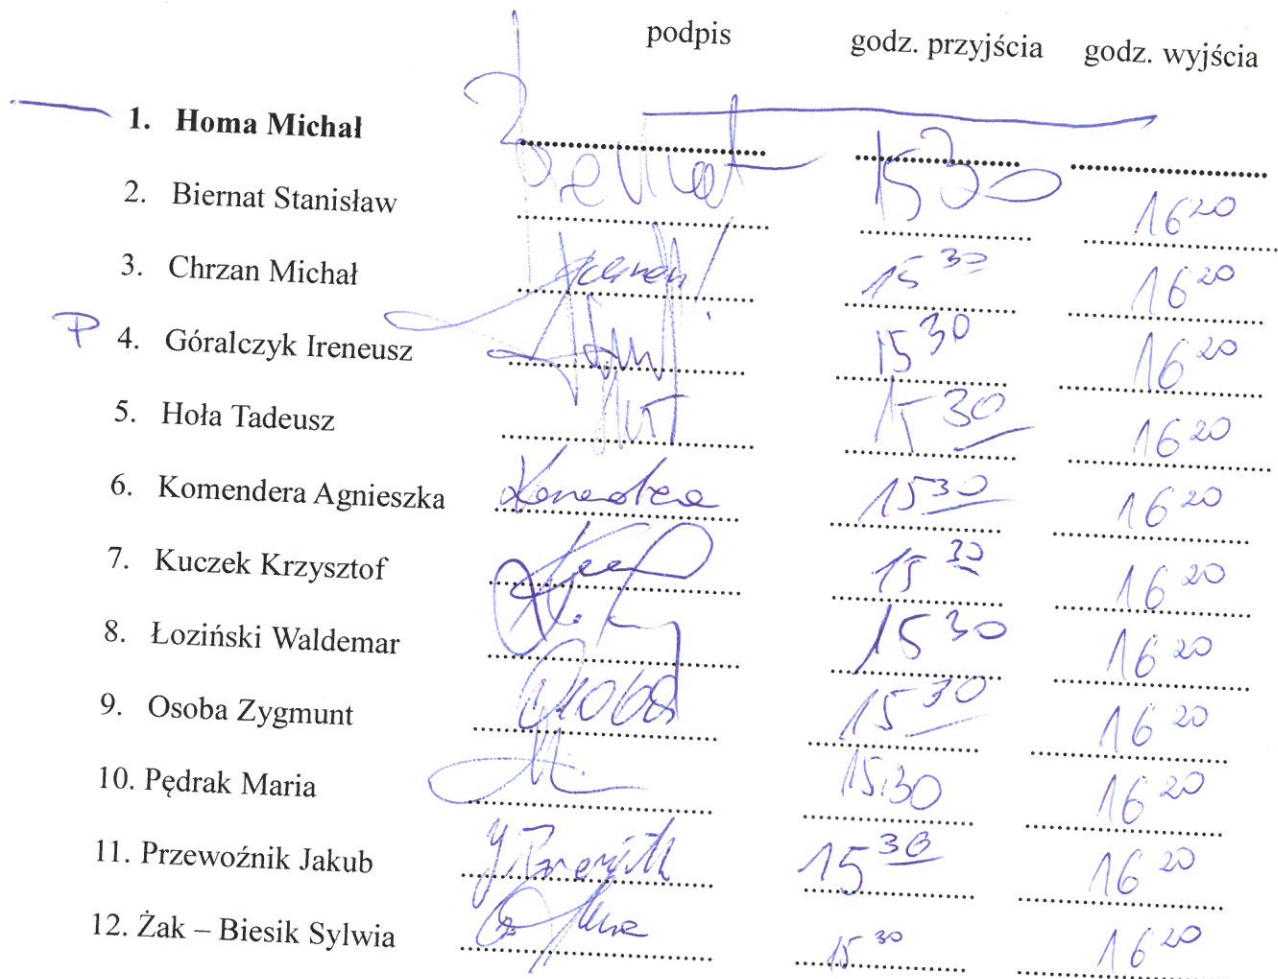 podpis godz. przyjścia godz. wyjścia
1. Homa Michał
2. Biernat Stanisław Biernat 15 30 16 20
3. Chrzan Michał 15 30 16 20
P 4. Góralczyk Ireneusz 15 30 16 20
5. Hoła Tadeusz 15 30 16 20
6. Komendera Agnieszka Komendera 15 30 16 20
7. Kuczek Krzysztof 15 30 16 20
8. Łoziński Waldemar 15 30 16 20
9. Osoba Zygmunt Osoba 15 30 16 20
10. Pędrak Maria 15.30 16 20
11. Przewoźnik Jakub 15 30 16 20
12. Żak – Biesik Sylwia 15 30 16 20